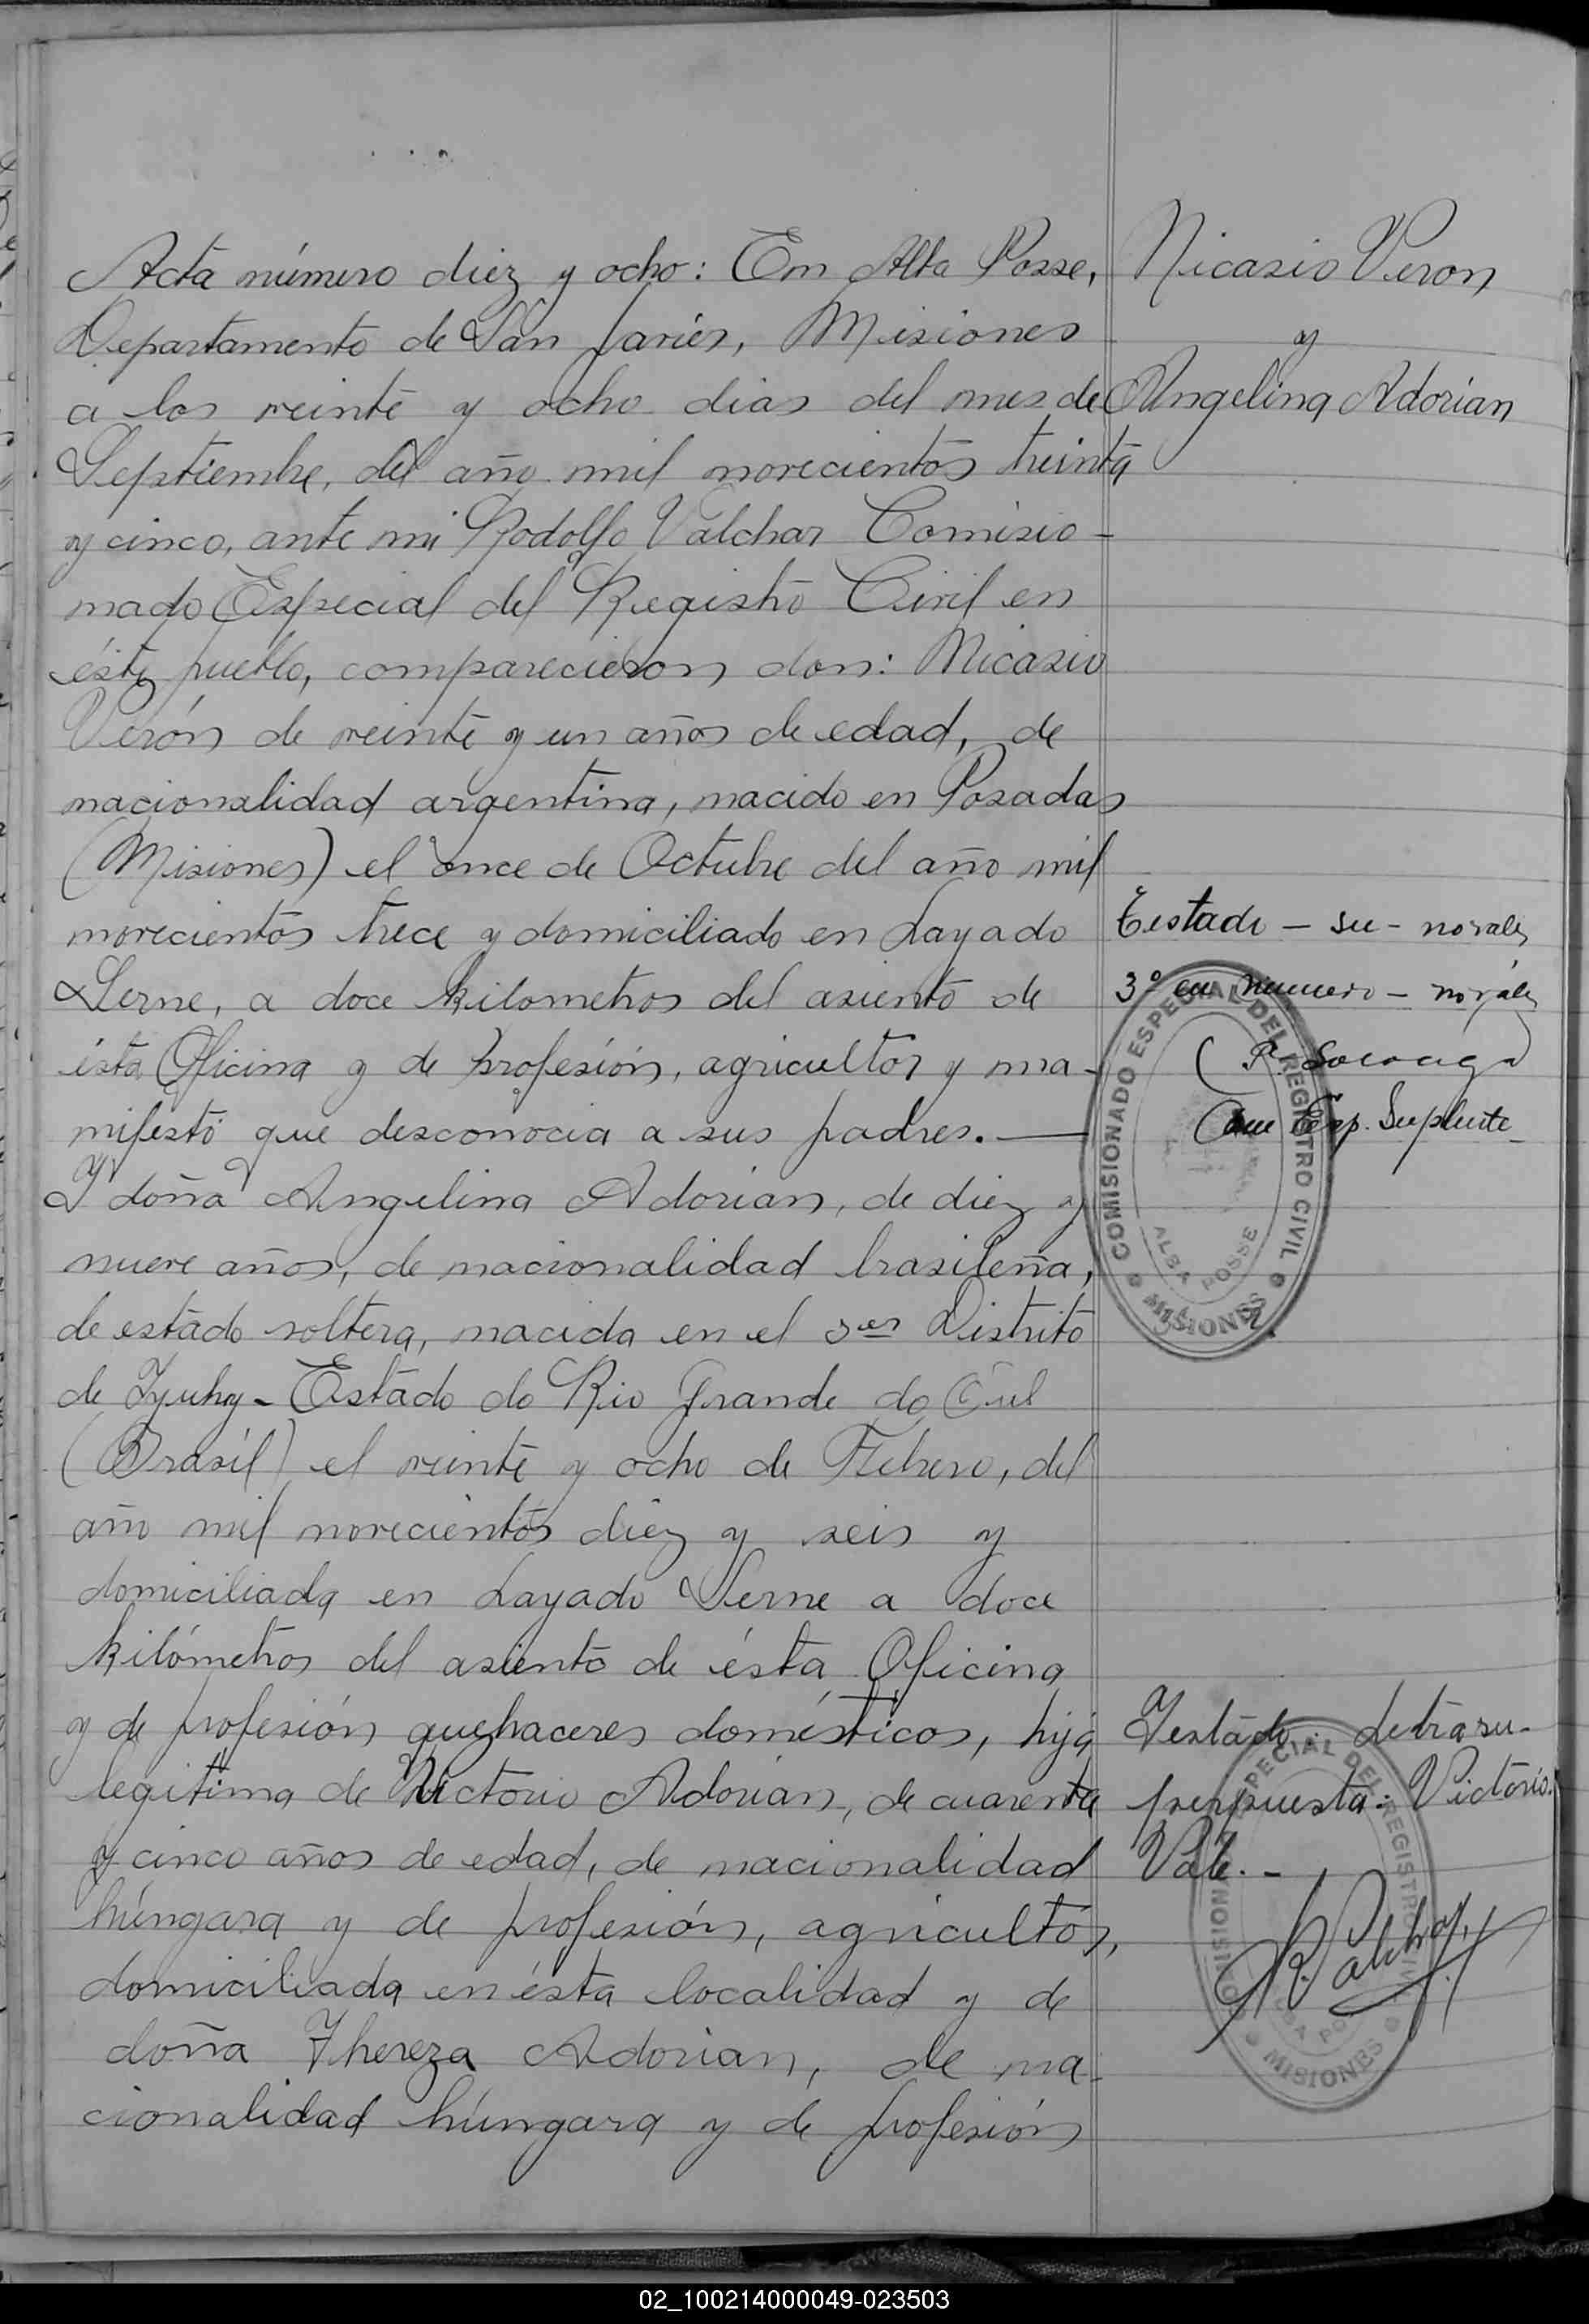 Acta número diez y ocho: En Alba Posse,
Departamento de San Javier, Misiones
a los veinte y ocho dias del mes de
Septiembre, del año mil novecientos treinta
y cinco, ante mi Rodolfo Valchar Comisio-
nado Especial del Registro Civil en
éste pueblo, comparecieron don: Nicasio
Verón de veinte y un años de edad, de
nacionalidad argentina, nacido en Posadas
(Misiones) el once de Octubre del año mil
novecientos trece y domiciliado en Layado
Serne, a doce kilometros del asiento de
ésta Oficina y de profesión, agricultor y ma-
nifestó que desconocia a sus padres.—
Y doña Angelina Adorian, de diez y
nueve años, de nacionalidad brasileña,
de estado soltera, nacida en el 3er Distrito
de Iyuhy - Estado do Rio Grande do Sul
(Brasil) el veinte y ocho de Febrero, del
año mil novecientos diez y seis y
domiciliada en Layado Serne a doce
kilómetros del asiento de ésta Oficina
y de profesión quehaceres domésticos, hija
legitima de Victorio Adorian, de cuarenta
y cinco años de edad, de nacionalidad
húngara y de profesión, agricultor,
domiciliada en ésta localidad y de
doña Thereza Adorian, de na-
cionalidad húngara y de profesión
Nicasio Veron
y
Angelina Adorian
Testado - su - no vale
3º en número - no vale
Com Esp. Suplente
COMISIONADO ESPECIAL DEL REGISTRO CIVIL
ALBA POSSE
MISIONES
Testado: Letra su-
perpuesta: Victorio.
Vale. -
R. Valchar
COMISIONADO ESPECIAL DEL REGISTRO CIVIL
ALBA POSSE
MISIONES
02_100214000049-023503